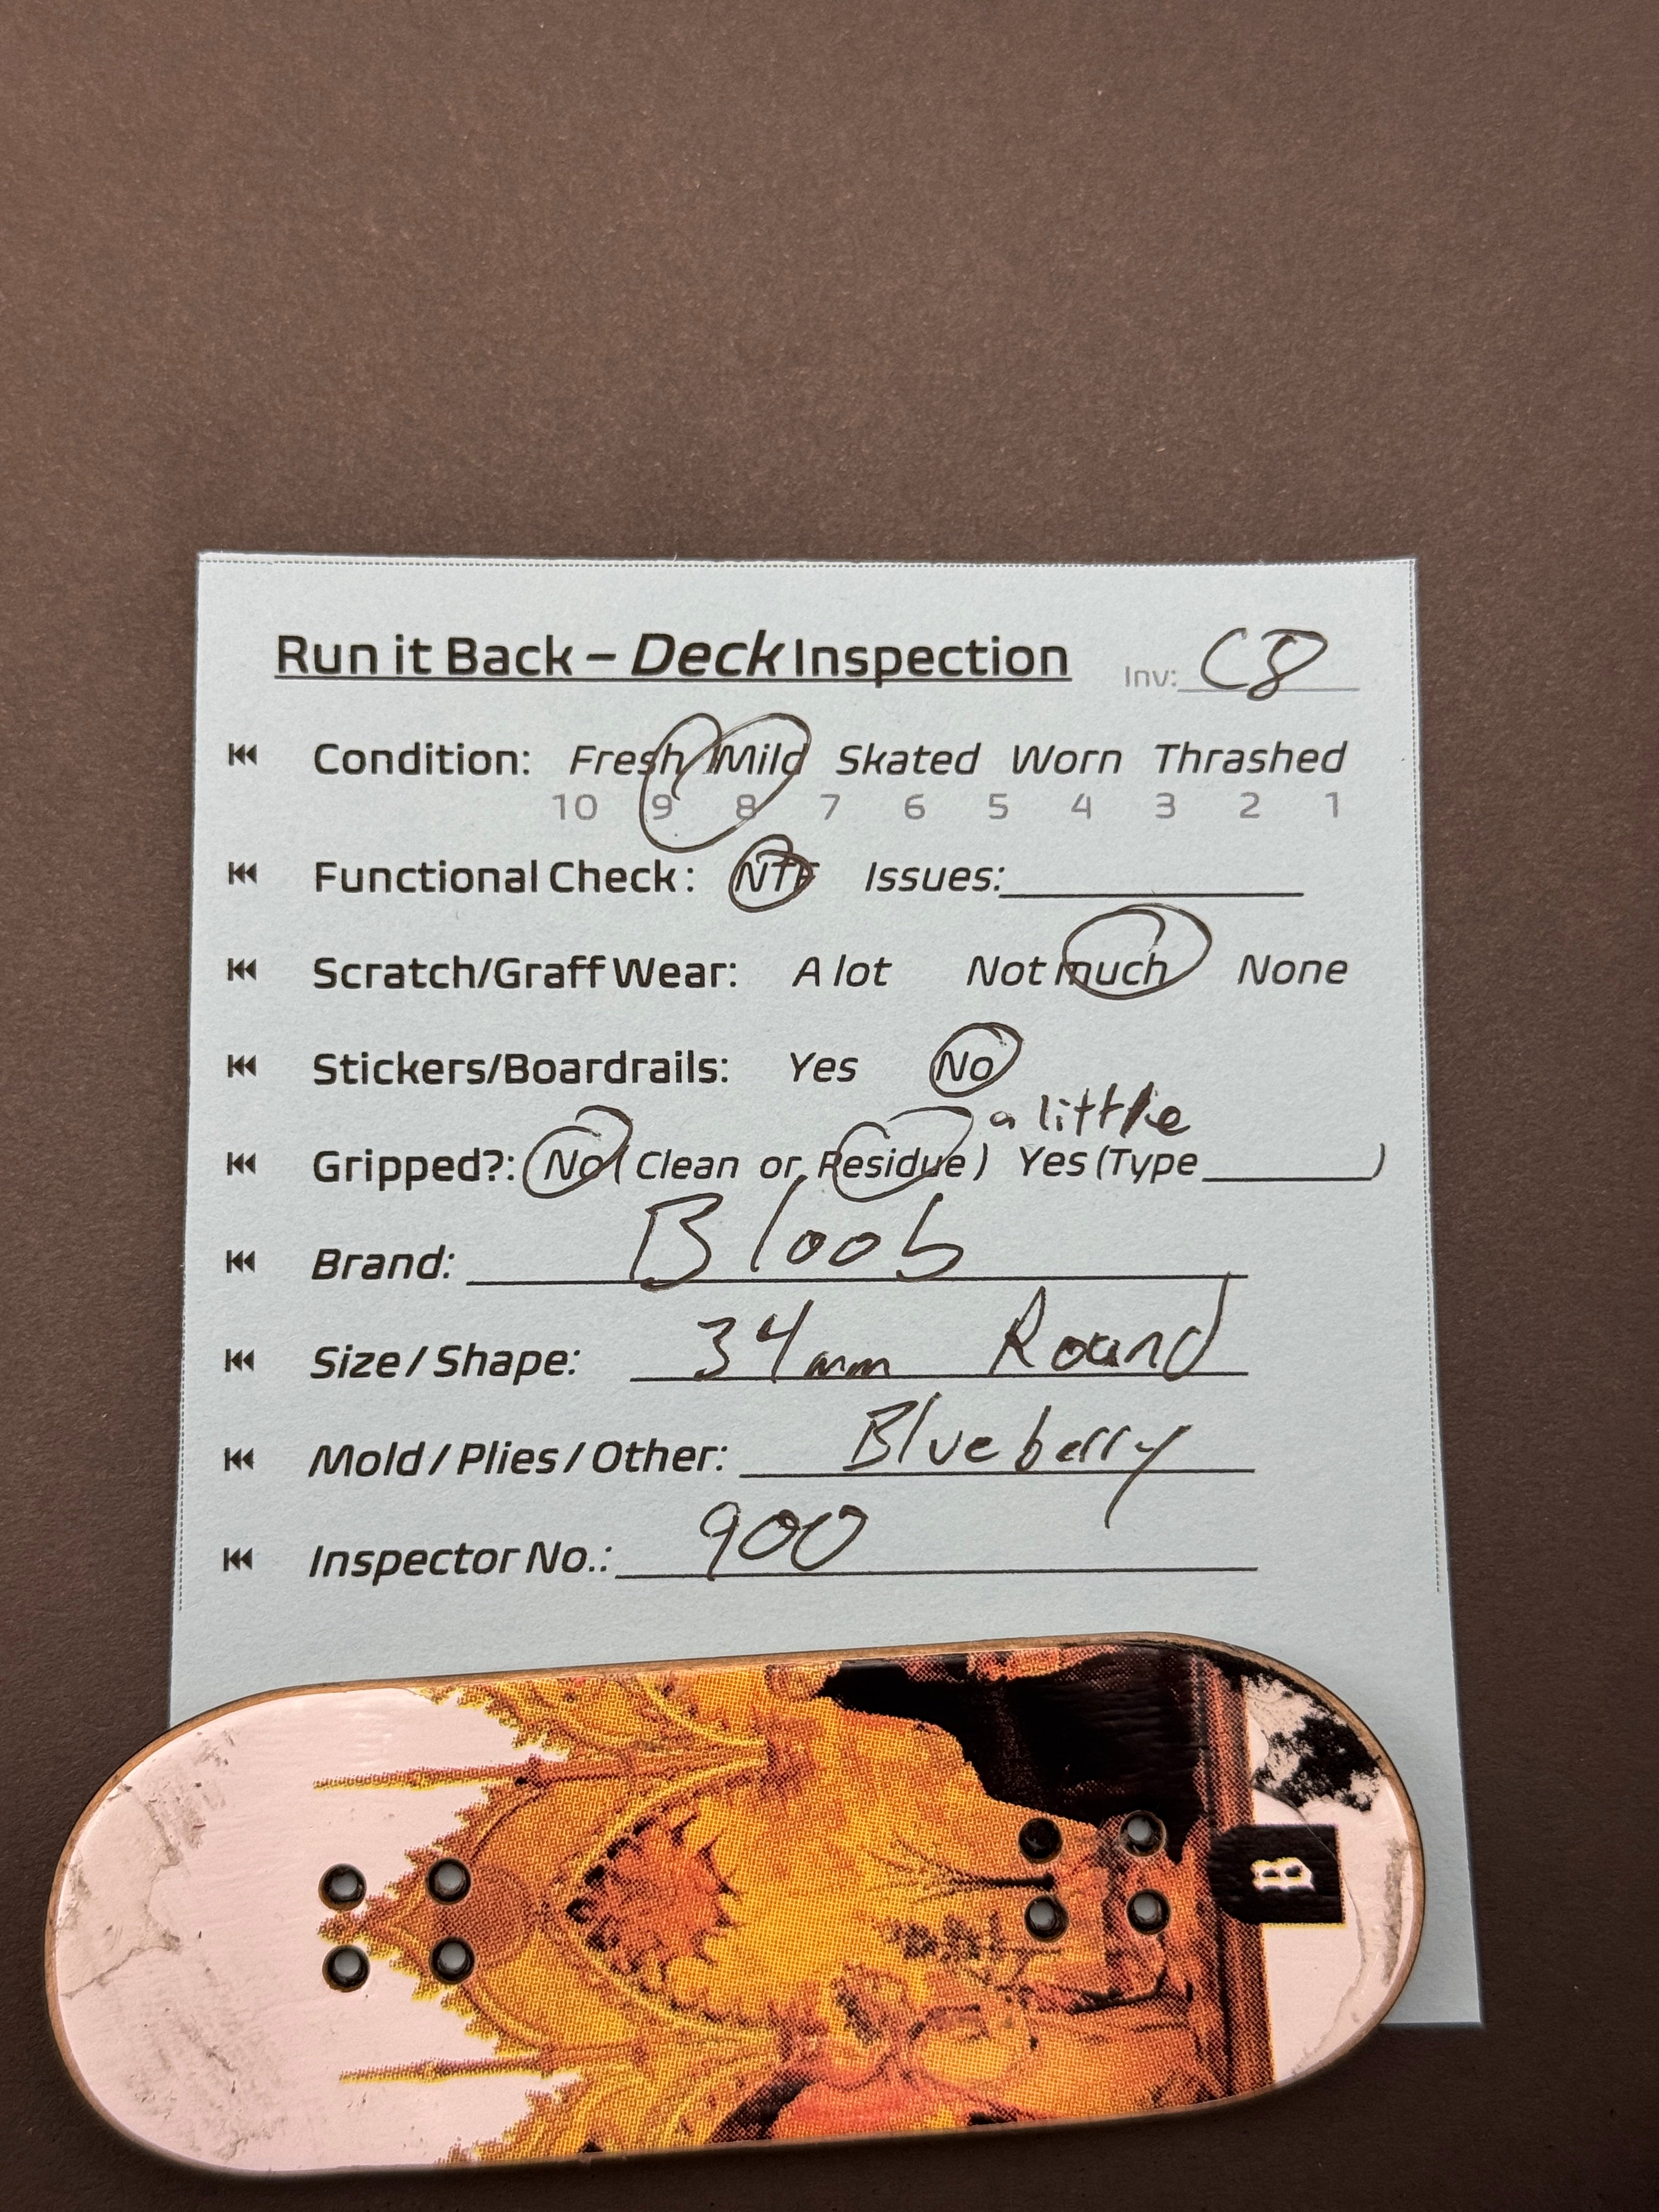 Run it Back – Deck Inspection Inv: C8
Condition: Fresh Mild Skated Worn Thrashed
10 9 8 7 6 5 4 3 2 1
Functional Check: NTF Issues:
Scratch/Graff Wear: A lot Not much None
Stickers/Boardrails: Yes No
a little
Gripped?: No ( Clean or Residue ) Yes (Type )
Brand: Bloob
Size / Shape: 34mm Round
Mold / Plies / Other: Blueberry
Inspector No.: 900
B